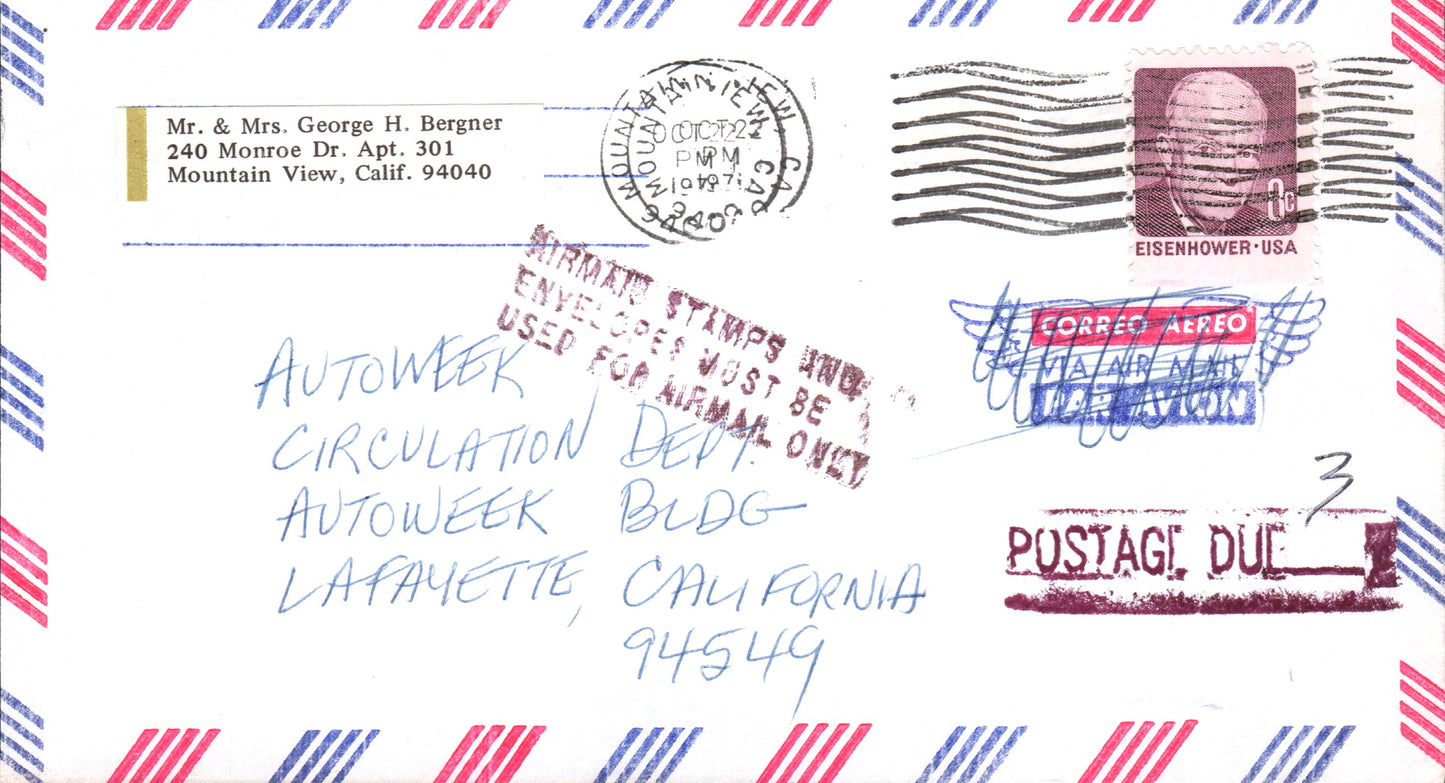 Mr. & Mrs. George H. Bergner
240 Monroe Dr. Apt. 301
Mountain View, Calif. 94040
MOUNTAIN VIEW, CA
OCT 22
PM
1971
EISENHOWER·USA
AIRMAIL STAMPS AND
ENVELOPES MUST BE
USED FOR AIRMAIL ONLY
CORREO AEREO
VIA AIR MAIL
PAR AVION
AUTOWEEK
CIRCULATION DEPT.
AUTOWEEK BLDG
LAFAYETTE, CALIFORNIA
94549
3
POSTAGE DUE